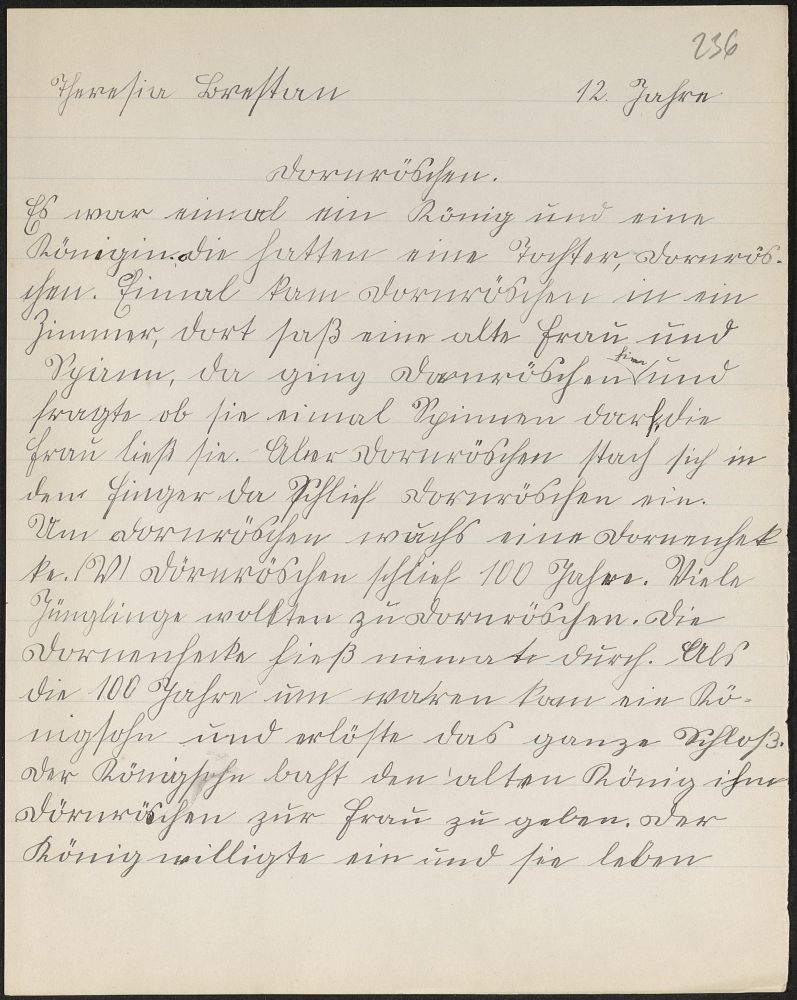 236
Theresia Brestan 12. Jahre
Dornröschen.
Es war einmal ein König und eine
Königin. die hatten eine Tochter, Dornrös-
chen. Einmal kam Dornröschen in ein
Zimmer, dort saß eine alte Frau und
Spinn, da ging Dornröschen hin und
fragte ob sie einmal Spinnen darf, die
Frau ließ sie. Aber Dornröschen stach sich in
den Finger da Schlief Dornröschen ein.
Um Dornröschen wuchs eine Dornenhek
ke. (V) Dörnröschen schlief 100 Jahre. Viele
Jünglinge wollten zu Dornröschen. Die
Dornenhecke hieß niemate durch. Als
die 100 Jahre um waren kam ein Kö-
nigsohn und erlöste das ganze Schloß.
Der Königsohn baht den alten König ihm
Dörnröschen zur Frau zu geben. Der
König willigte ein und sie leben